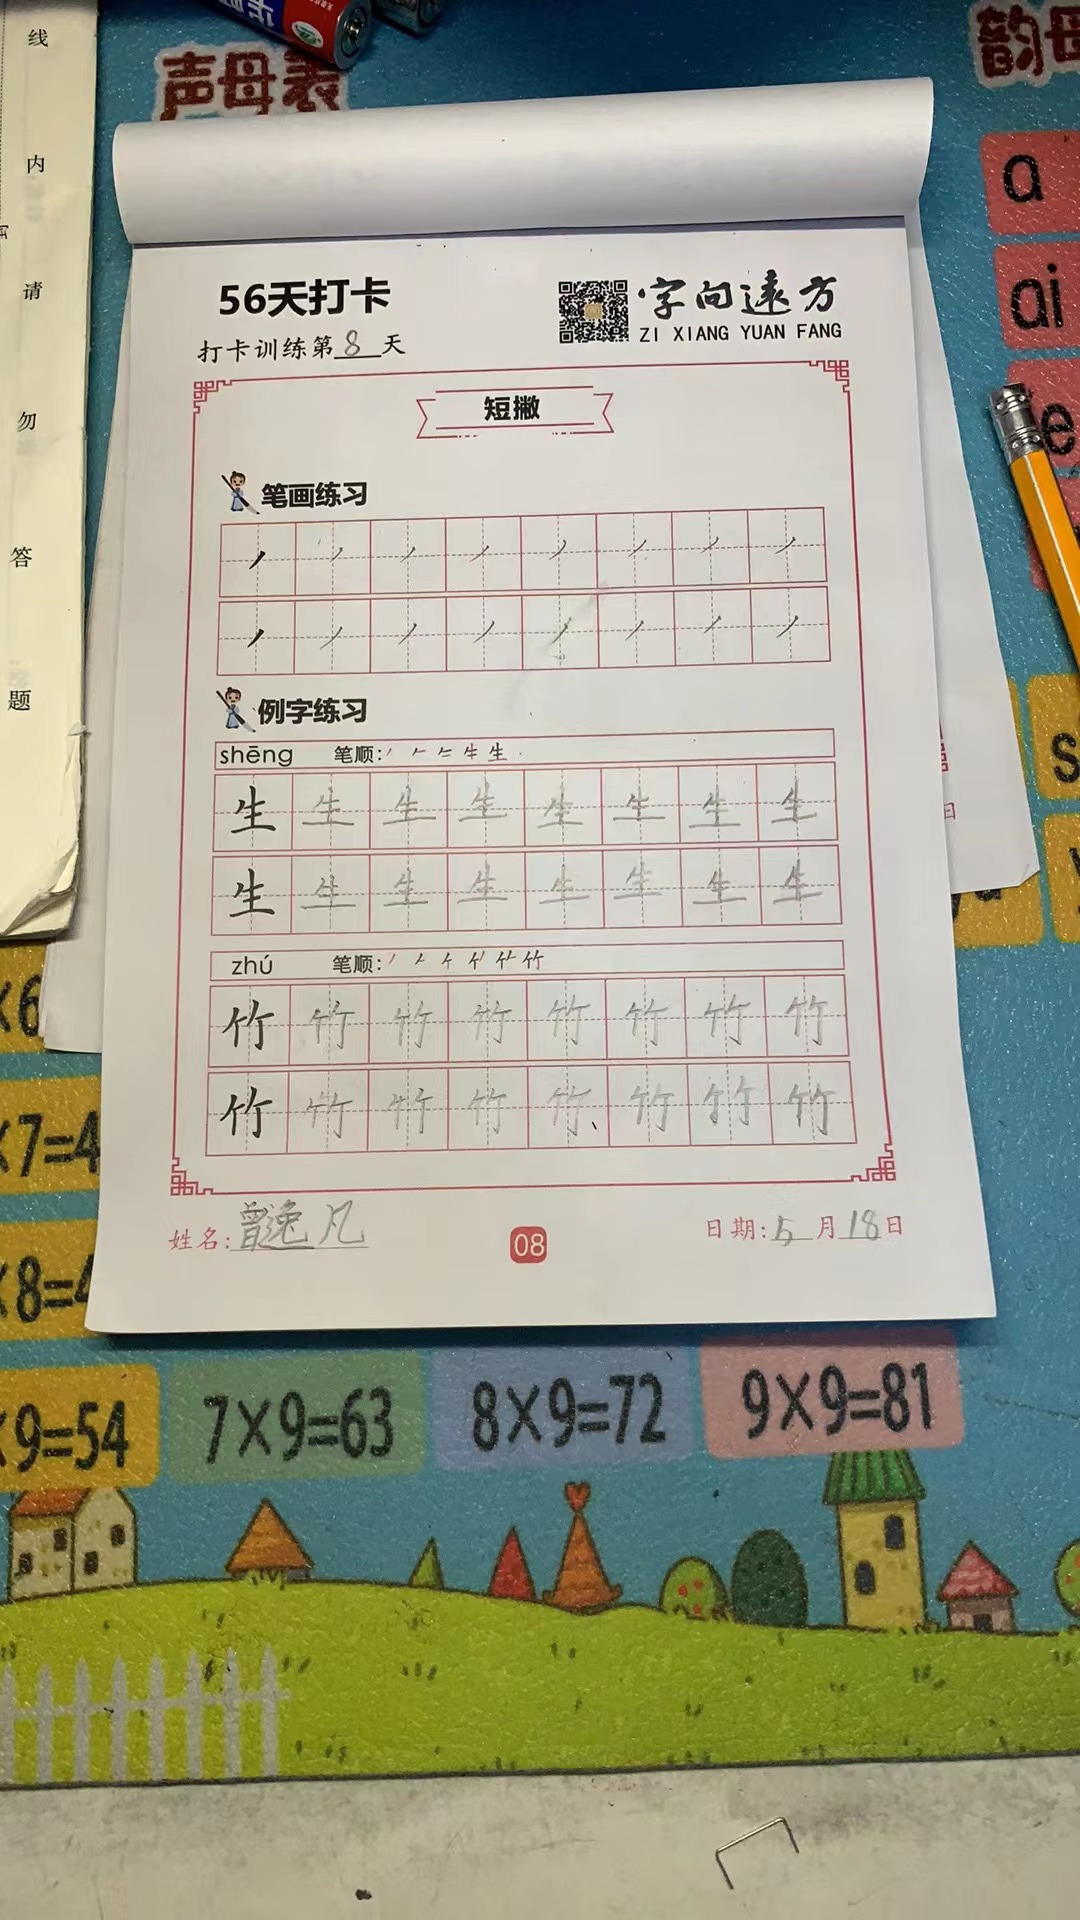 线
内
请
勿
答
题
声母表
韵母
a
ai
e
56天打卡
字向远方
ZI XIANG YUAN FANG
打卡训练第8天
短撇
笔画练习
例字练习
shēng 笔顺:
生 生 生 生 生 生 生 生
生 生 生 生 生 生 生 生
zhú 笔顺:
竹 竹 竹 竹 竹 竹 竹 竹
竹 竹 竹 竹 竹 竹 竹 竹
姓名:曾逸凡
08
日期:5月18日
×6
×7=4
×8=4
×9=54 7×9=63 8×9=72 9×9=81